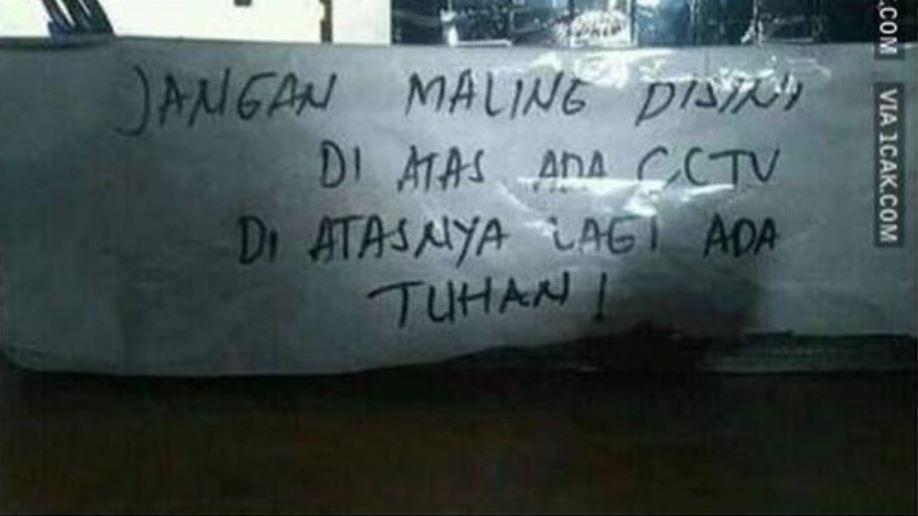 JANGAN MALING DISINI
DI ATAS ADA CCTV
DI ATASNYA LAGI ADA
TUHAN!
.COM
VIA 1CAK.COM